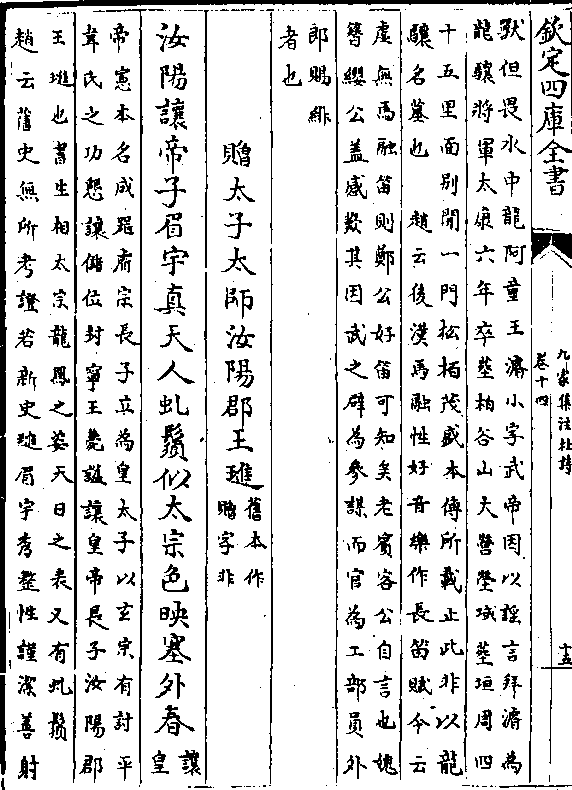 欽定四庫全書
九家集注杜詩
卷十四
十五
獸但畏水中龍阿童王濬小字武帝因以謡言拜濬為
龍驤將軍太康六年卒塟柏谷山大營塋域塟垣周四
十五里面别開一門松栢茂盛本傳所載止此非以龍
驤名墓也 趙云後漢馬融性好音樂作長笛賦今云
虚無馬融笛則鄭公好笛可知矣老賓客公自言也媿
簪纓公盖感歎其因武之辟為參謀而官為工部員外
郎賜緋
者也
贈太子太師汝陽郡王璡
舊本作
贈字非
汝陽讓帝子眉宇真天人虬鬚似太宗色映塞外春
讓
皇
帝憲本名成器睿宗長子立為皇太子以玄宗有討平
韋氏之功懇讓儲位封寧王薨諡讓皇帝長子汝陽郡
王璡也書生相太宗龍鳳之姿天日之表又有虬鬚
趙云舊史無所考證若新史璡眉宇秀整性謹潔善射